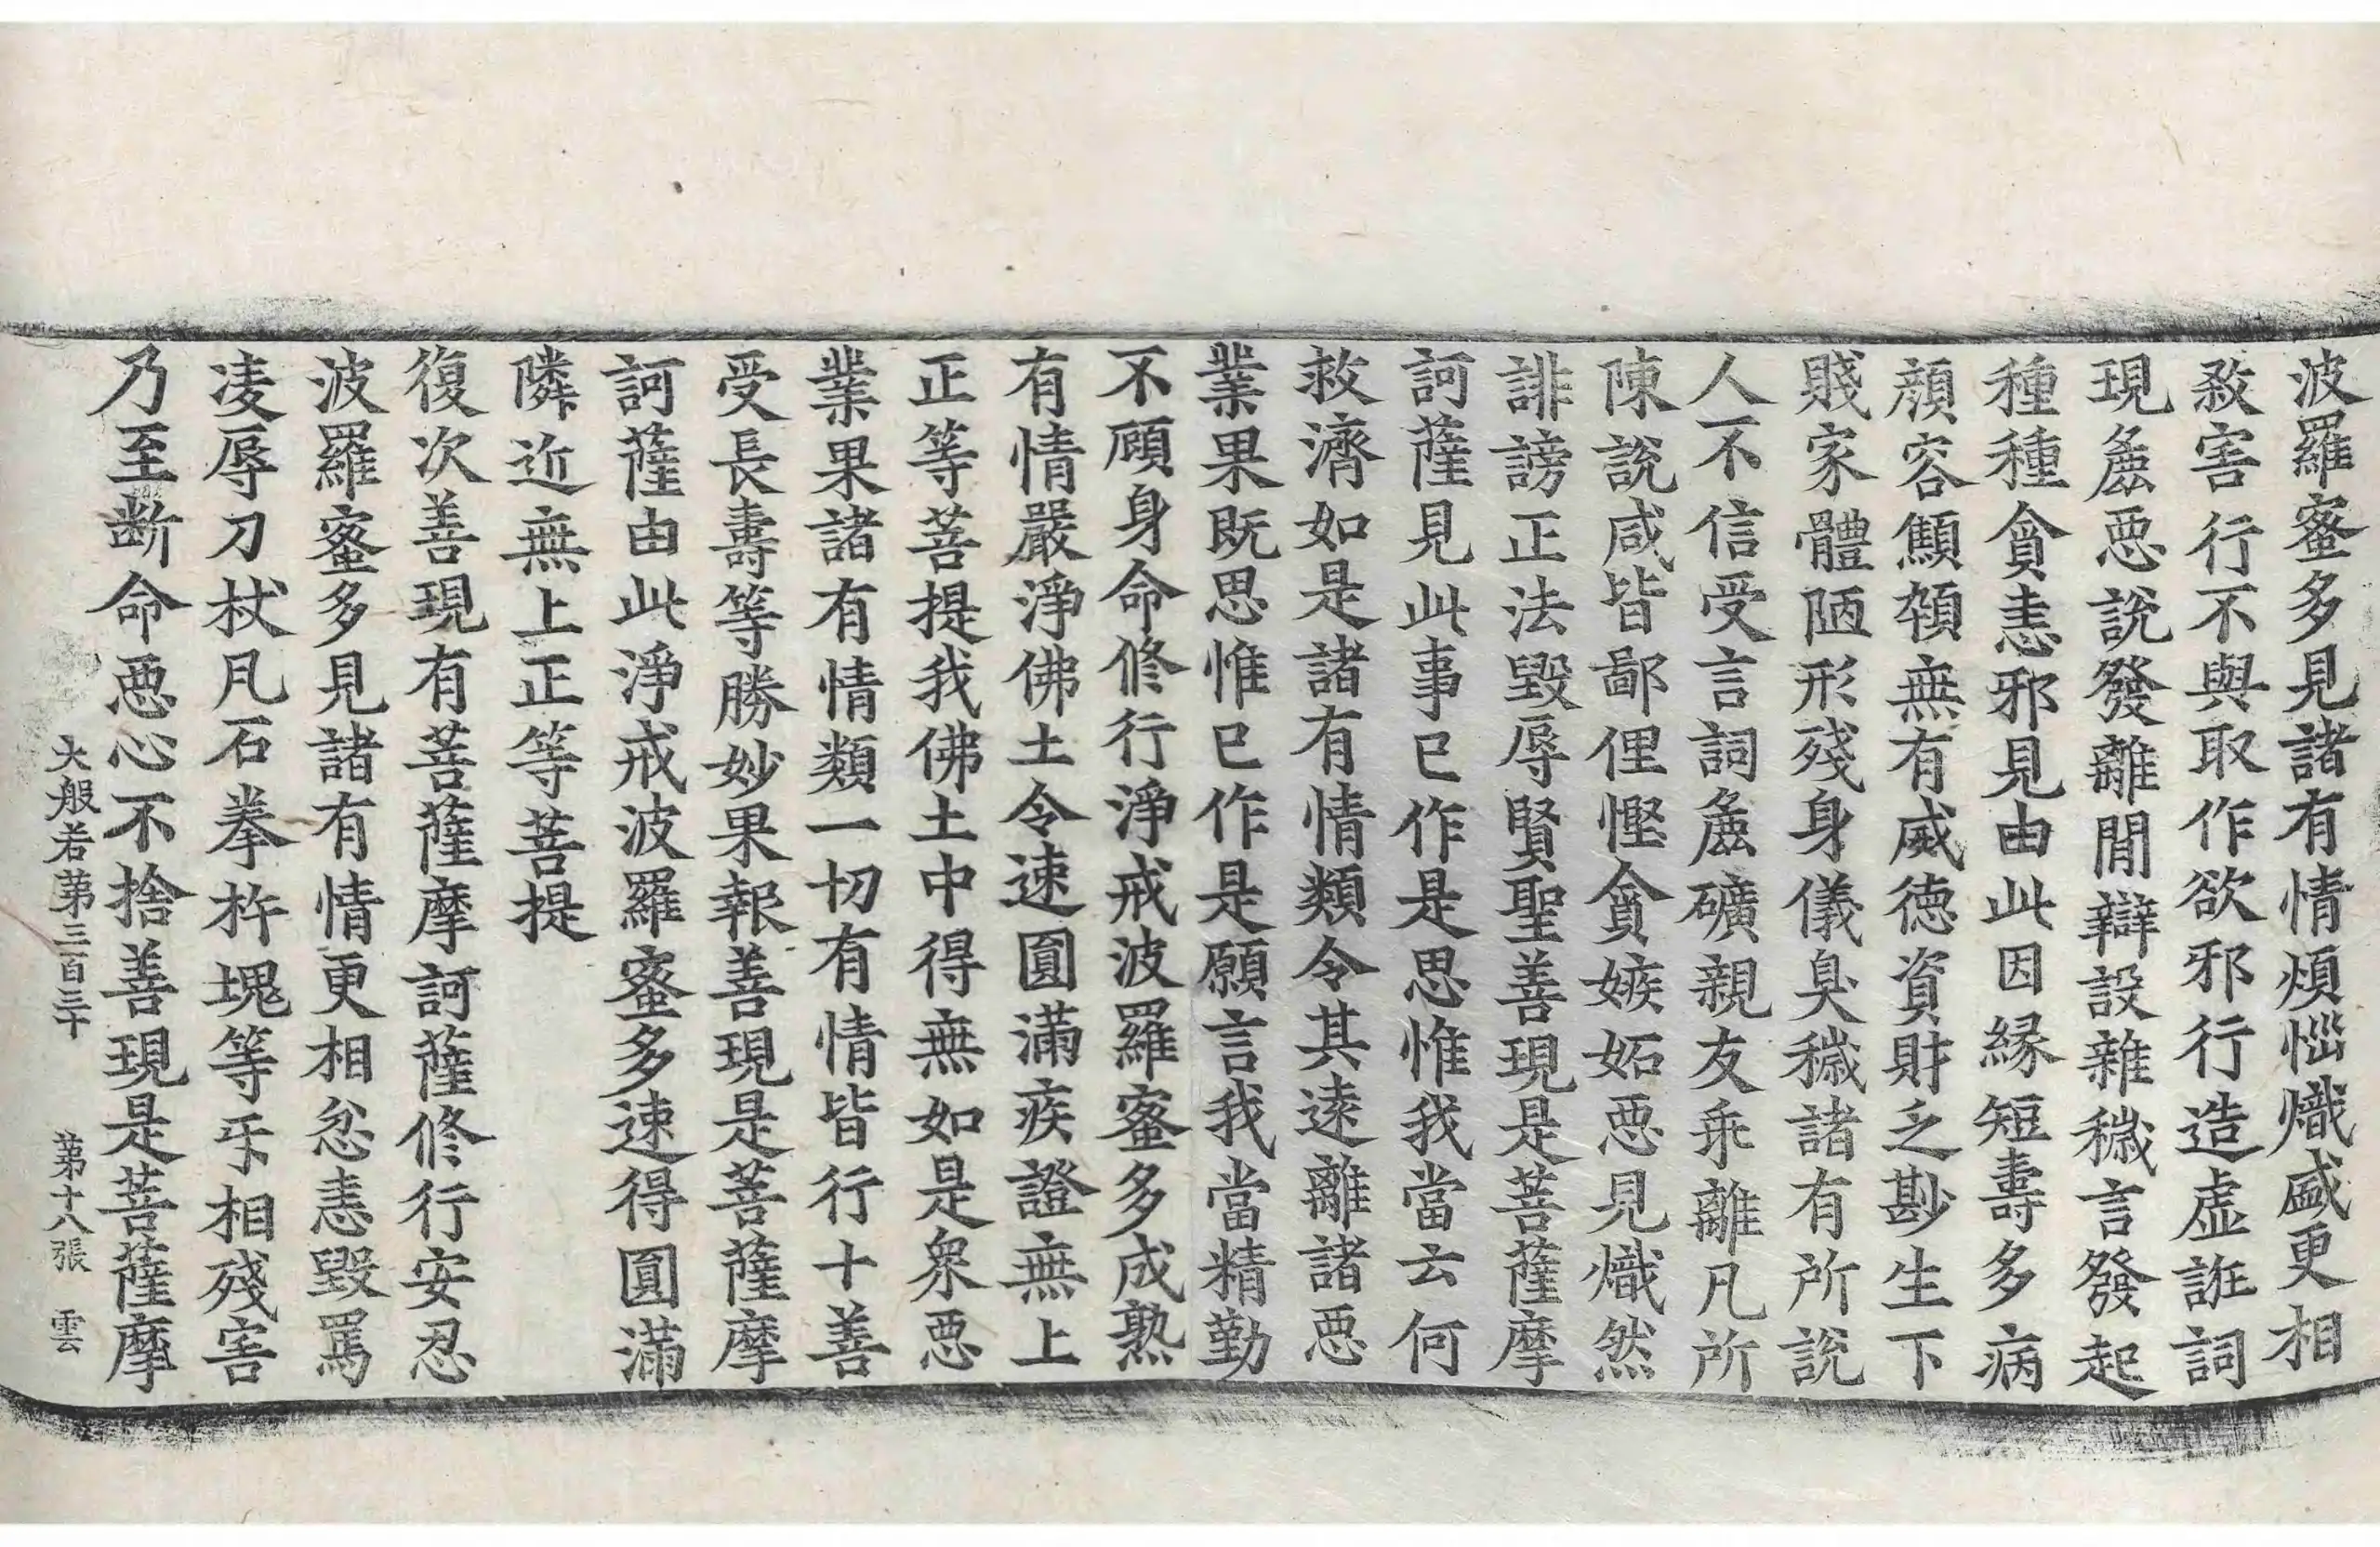 波羅蜜多見諸有情煩惱熾盛更相
煞害行不與取作欲邪行造虛誑詞
現麁惡說發離間辯設雜穢言發起
種種貪恚邪見由此因緣短壽多病
顏容顦顇無有威德資財乏尠生下
賤家體陋形殘身儀臭穢諸有所說
人不信受言詞麁礦親友乖離凡所
陳說咸皆鄙俚慳貪嫉妬惡見熾然
誹謗正法毀辱賢聖善現是菩薩摩
訶薩見此事已作是思惟我當云何
救濟如是諸有情類令其遠離諸惡
業果既思惟已作是願言我當精勤
不顧身命修行淨戒波羅蜜多成熟
有情嚴淨佛土令速圓滿疾證無上
正等菩提我佛土中得無如是眾惡
業果諸有情類一切有情皆行十善
受長壽等勝妙果報善現是菩薩摩
訶薩由此淨戒波羅蜜多速得圓滿
隣近無上正等菩提
復次善現有菩薩摩訶薩修行安忍
波羅蜜多見諸有情更相忿恚毀罵
凌辱刀杖凡石拳杵塊等乎相殘害
乃至斷命惡心不捨善現是菩薩摩
大般若第三百三十 第十八張 雲